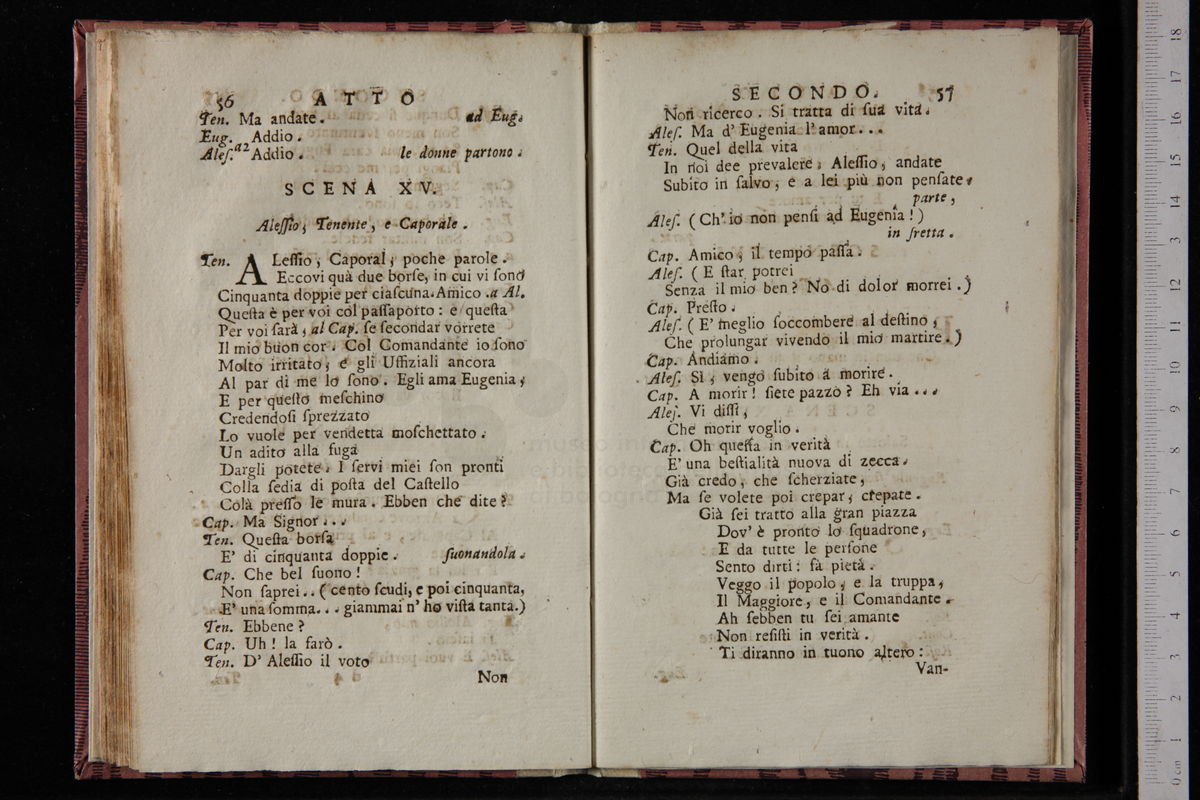 56 ATTO
Ten. Ma andate. ad Eug.
Eug. Addio.
Aleſ. a2 Addio. le donne partono.
SCENA XV.
Aleſſio, Tenente, e Caporale.
Ten. ALeſſio, Caporal, poche parole.
Eccovi quà due borſe, in cui vi ſono
Cinquanta doppie per ciaſcuna. Amico. a Al.
Queſta è per voi col paſſaporto: e queſta
Per voi ſarà, al Cap. ſe ſecondar vorrete
Il mio buon cor. Col Comandante io ſono
Molto irritato, e gli Uffiziali ancora
Al par di me lo ſono. Egli ama Eugenia,
E per queſto meſchino
Credendoſi ſprezzato
Lo vuole per vendetta moſchettato.
Un adito alla fuga
Dargli potete. I ſervi miei ſon pronti
Colla ſedia di poſta del Caſtello
Colà preſſo le mura. Ebben che dite?
Cap. Ma Signor...
Ten. Queſta borſa
E' di cinquanta doppie. ſuonandola.
Cap. Che bel ſuono!
Non ſaprei.. (cento ſcudi, e poi cinquanta,
E' una ſomma... giammai n' ho viſta tanta.)
Ten. Ebbene?
Cap. Uh! la farò.
Ten. D' Aleſſio il voto
Non
SECONDO. 57
Non ricerco. Si tratta di ſua vita.
Aleſ. Ma d' Eugenia l' amor...
Ten. Quel della vita
In noi dee prevalere. Aleſſio, andate
Subito in ſalvo, e a lei più non penſate.
parte,
Aleſ. (Ch' io non penſi ad Eugenia!)
in fretta.
Cap. Amico, il tempo paſſa.
Aleſ. (E ſtar potrei
Senza il mio ben? No di dolor morrei.)
Cap. Preſto.
Aleſ. (E' meglio ſoccombere al deſtino,
Che prolungar vivendo il mio martire.)
Cap. Andiamo.
Aleſ. Sì, vengo ſubito a morire.
Cap. A morir! ſiete pazzo? Eh via...
Aleſ. Vi diſſi,
Che morir voglio.
Cap. Oh queſta in verità
E' una beſtialità nuova di zecca.
Già credo, che ſcherziate,
Ma ſe volete poi crepar, crepate.
Già ſei tratto alla gran piazza
Dov' è pronto lo ſquadrone,
E da tutte le perſone
Sento dirti: fa pietà.
Veggo il popolo, e la truppa,
Il Maggiore, e il Comandante.
Ah ſebben tu ſei amante
Non reſiſti in verità.
Ti diranno in tuono altero:
Van-